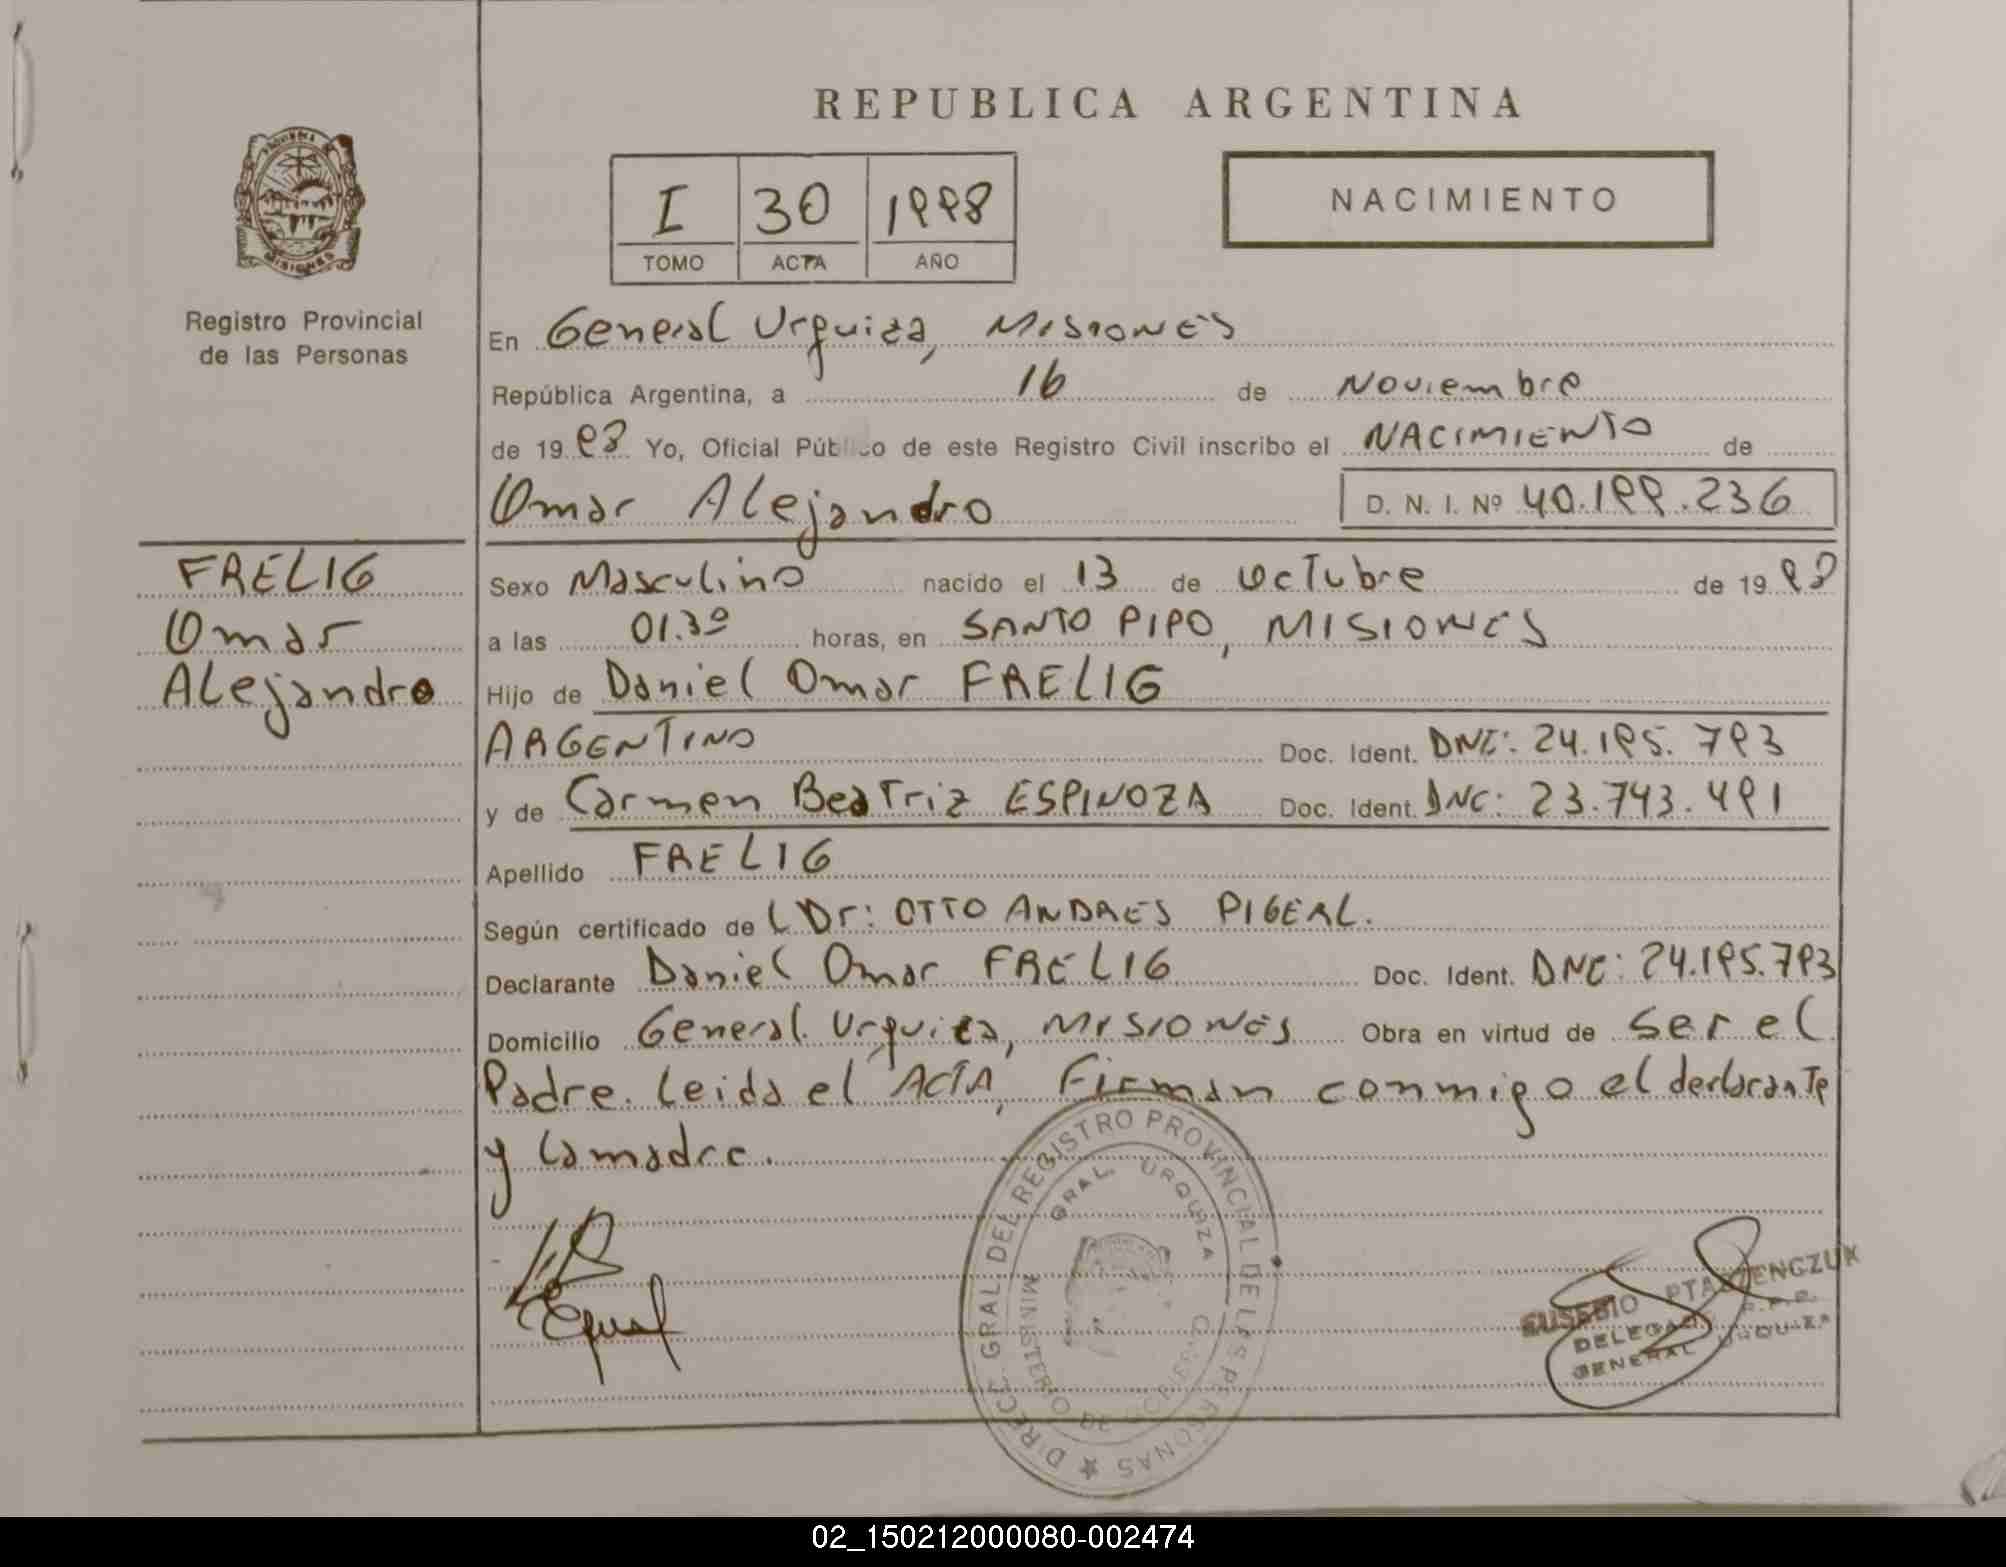 REPUBLICA ARGENTINA
NACIMIENTO
I 30 1998
TOMO ACTA AÑO
MISIONES
Registro Provincial
de las Personas
En General Urquiza, MISIONES
República Argentina, a 16 de Noviembre
de 1998 Yo, Oficial Público de este Registro Civil inscribo el NACIMIENTO de
Omar Alejandro D. N. I. Nº 40.199.236
FRELIG
Omar
Alejandro
Sexo Masculino nacido el 13 de Octubre de 1998
a las 01.30 horas, en SANTO PIPO, MISIONES
Hijo de Daniel Omar FRELIG
ARGENTINO Doc. Ident. DNI: 24.195.793
y de Carmen Beatriz ESPINOZA Doc. Ident. DNI: 23.743.491
Apellido FRELIG
Según certificado de l Dr: OTTO ANDRES PIGERL.
Declarante Daniel Omar FRELIG Doc. Ident. DNI: 24.195.793
Domicilio General Urquiza, MISIONES Obra en virtud de ser el
Padre. Leida el ACTA, Firman conmigo el declarante
y la madre.
DIRECC. GRAL DEL REGISTRO PROVINCIAL DE LAS PERSONAS
GRAL. URQUIZA
MINISTERIO DE
EUSEBIO
DELEGADO R.P.P.
GENERAL URQUIZA
02_150212000080-002474